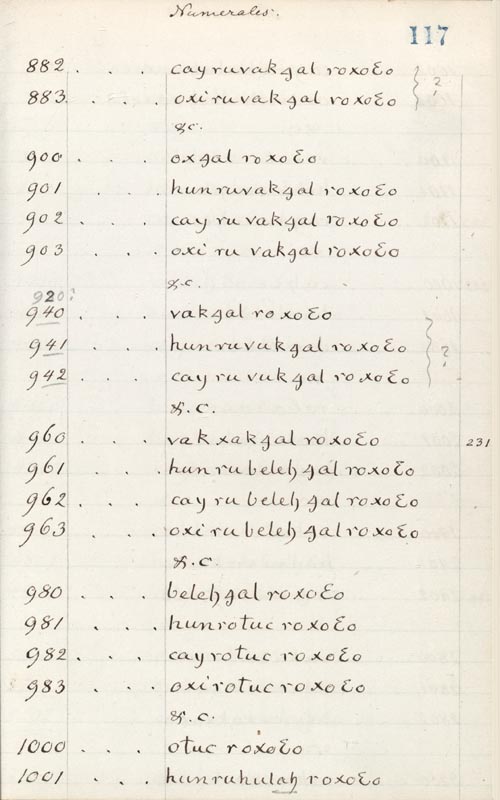 Numerales.
117
882 . . . cay ruvakgal roxoƐo } ?
883 . . . oxi ruvakgal roxoƐo
&c.
900 . . . oxgal roxoƐo
901 . . . hun ruvakgal roxoƐo
902 . . . cay ru vakgal roxoƐo
903 . . . oxi ru vakgal roxoƐo
&c.
920?
940 . . . vakgal roxoƐo
941 . . . hun ruvukgal roxoƐo } ?
942 . . . cay ru vukgal roxoƐo
&.c.
960 . . . vakxakgal roxoƐo 231
961 . . . hun ru beleh gal roxoƐo
962 . . . cay ru beleh gal roxoƐo
963 . . . oxi ru beleh gal roxoƐo
&.c
980 . . . beleh gal roxoƐo
981 . . . hun rotuc roxoƐo
982 . . . cay rotuc roxoƐo
983 . . . oxi rotuc roxoƐo
&.c.
1000 . . . otuc roxoƐo
1001 . . . hun ruhulah roxoƐo